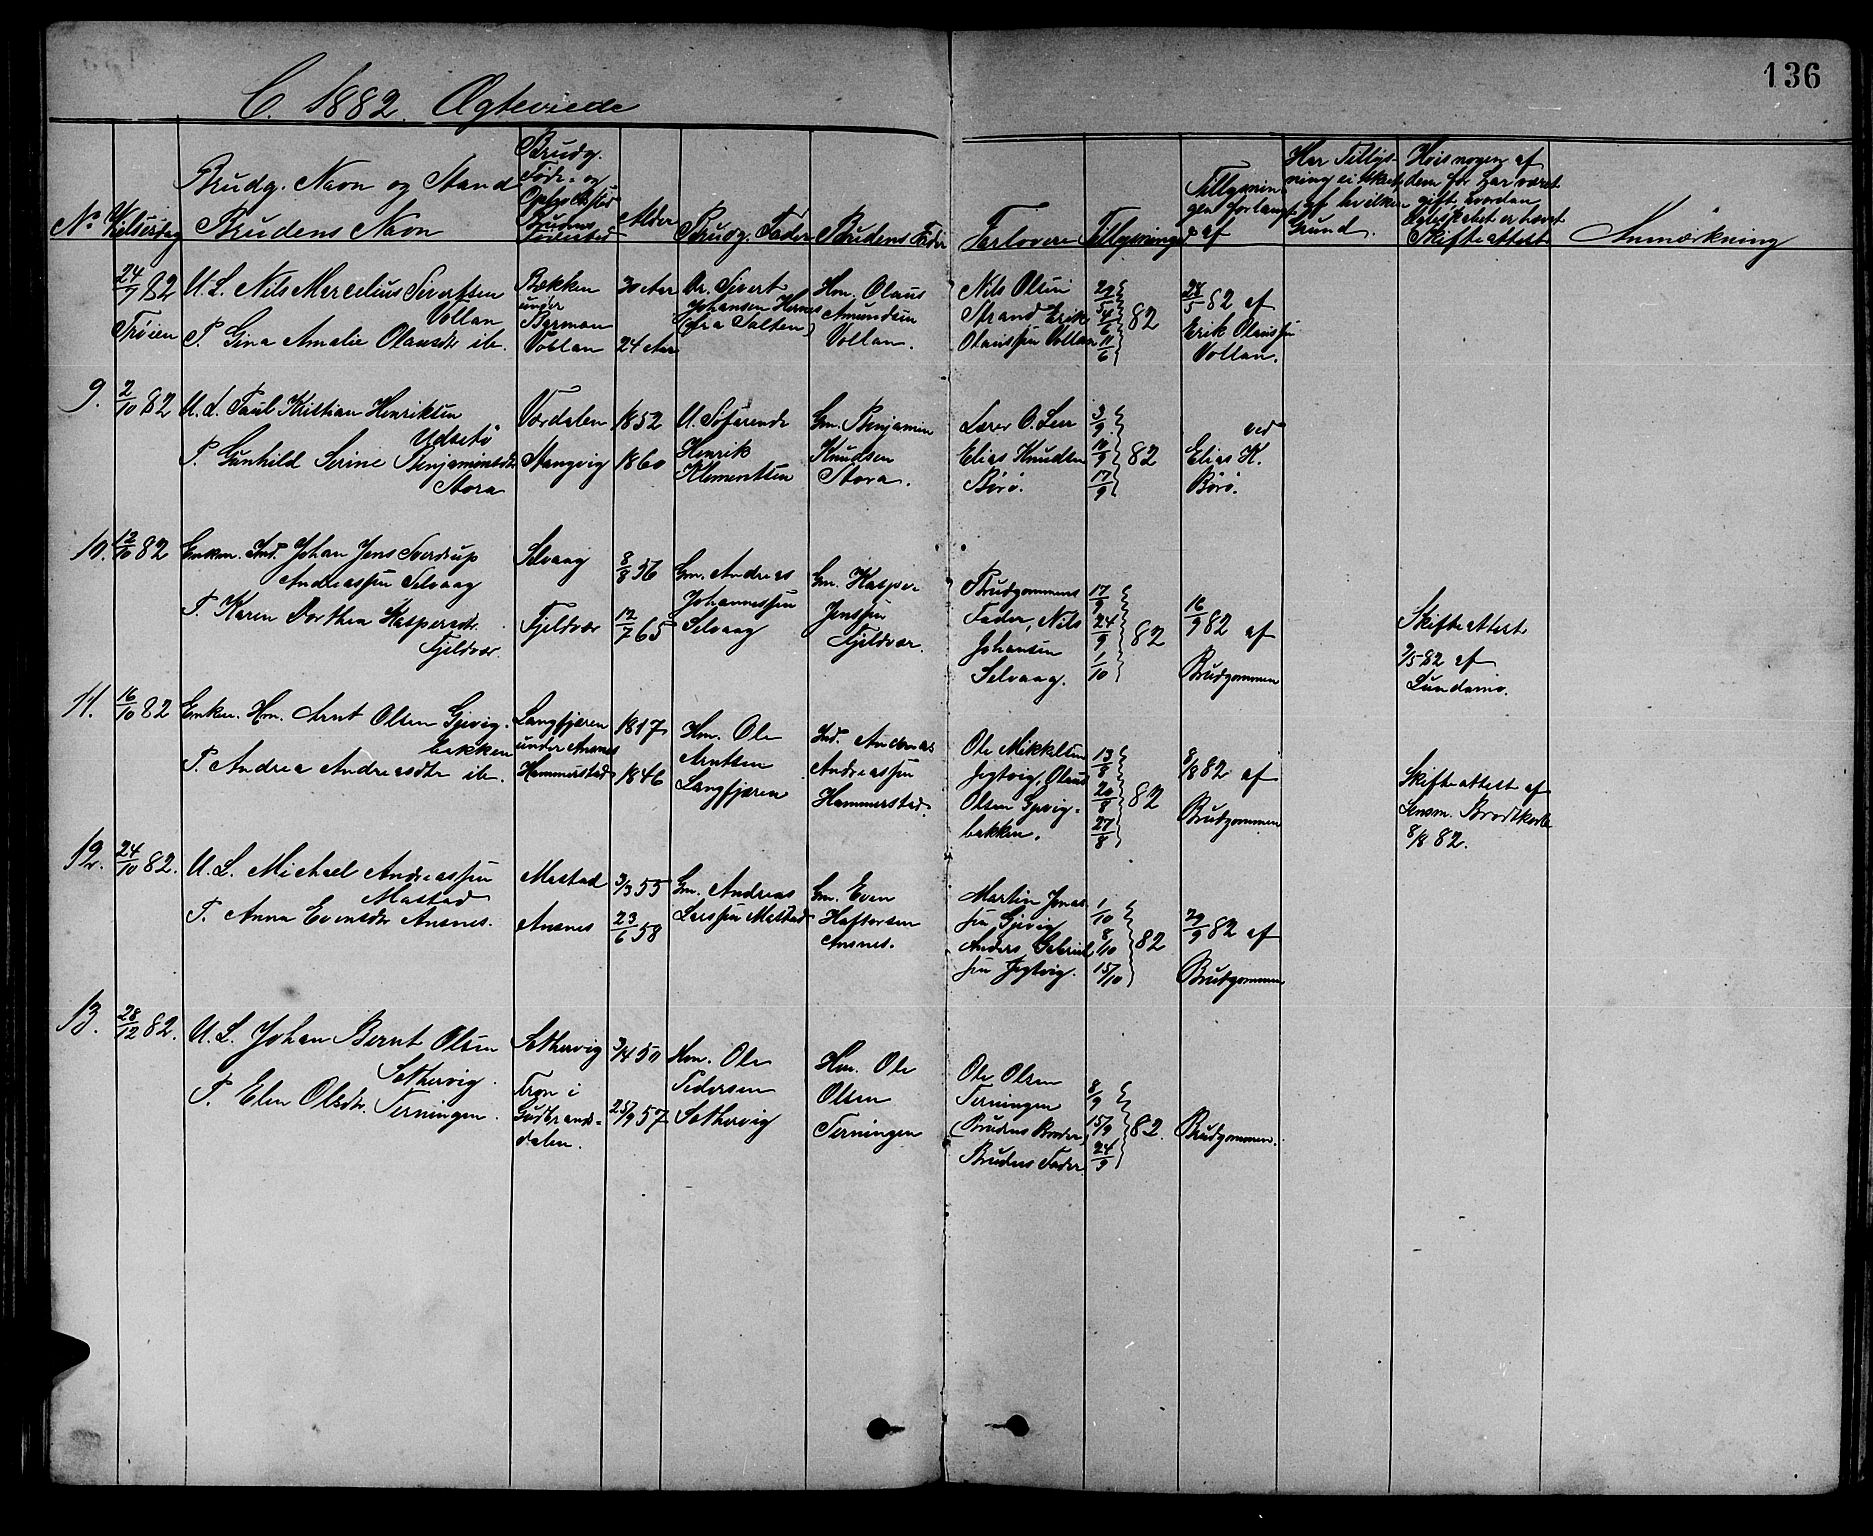 136
C. 1882. Ægteviede
No
Vielsesdag
Brudg. Navn og Stand
Brudens Navn
Brudg.
Føde- og
Opholdssted
Brudens
Fødested
Alder
Brudg. Fader
Brudens Fader
Forlovere
Tillysninger
Tillysnin-
gen forlangt
af
Har Tillys-
ning ei skeet,
af hvilken
Grund.
Hvis nogen af
dem før har været
gift, hvordan
Egteskabet er hævet
Skifteattest
Anmærkning
24/7 82
Trøien
U. L. Nils Marcelius Sivertsen
Vollan
P. Gina Amalie Olausdtr ib.
Bækken
under
Berman
Vollan
30 Aar
24 Aar
Sivert
Johansen Hernes
(fra Salten)
Hm. Olaus
Amundsen
Vollan.
Nils Olsen
Strand Erik
Olaussen Vollan
4/6
11/6
82
82 af
Erik Olaussen
Vollan.
9.
2/10 82
U. L. Paul Kristian Henriksen
Udsetø
P. Gunhild Serine Benjaminsdtr
Stora
Værdalen
Stangvig
1852
1860
U. Søfarende
Henrik
Klementsen
Gm. Benjamin
Knudsen
Stora.
Lærer O. Leer
Elias Knudsen
Børø.
3/9
10/9
17/9
82
ved
Elias K.
Børø.
10.
12/10 82
Enkem. Ind. Johan Jens Sverdrup
Andreassen Selvaag
P. Karen Dorthea Kaspersdtr.
Fjeldvær.
Selvaag
Fjeldvær
8/8 56
12/7 65
Gm. Andreas
Johannessen
Selvaag
Gm. Kasper
Jenssen
Fjeldvær.
Brudgommens
Fader, Nils
Johansen
Selvaag.
17/9
24/9
1/10
82
16/9 82 af
Brudgommen
Skifteattest
9/5 82 af
Lundamo.
11.
16/10 82
Enkem. Hm. Arnt Olsen Gjevig-
bakken
P. Andrea Andreasdtr ib.
Langfjæren
under Ansnes
Hammerstad
1817
1846
Hm. Ole
Arntsen
Langfjæren
Ind. Andreas
Andreassen
Hammerstad.
Ole Mikkelsen
Jegtvig, Olaus
Olsen Gjevig-
bakken.
13/8
20/8
27/8
82
8/8 82 af
Brudgommen
Skifteattest af
Lensm. Brodtkorb
8/8 82.
12.
24/10 82.
U. L. Michael Andreassen
Mastad
P. Anna Evensdtr Ansnes.
Mastad
Ansnes
3/3 55
23/6 58
Gm. Andreas
Larssen Mastad
Gm. Even
Haftorsen
Ansnes.
Martin Jonas-
sen Gjevig
Anders Gabriel-
sen Jegtvig.
1/10
8/10
15/10
82
29/9 82 af
Brudgommen
13.
28/12 82.
U. L. Johan Bernt Olsen
Sethervig.
P. Elen Olsdtr. Terningen.
Sethervig
Fron i
Gudbrands-
dalen.
3/4 50
25/9 57
Hm. Ole
Pedersen
Sethervig
Hm. Ole
Olsen
Terningen
Ole Olsen
Terningen
(Brudens Broder)
Brudens Fader
8/9
15/9
24/9
82.
Brudgommen.